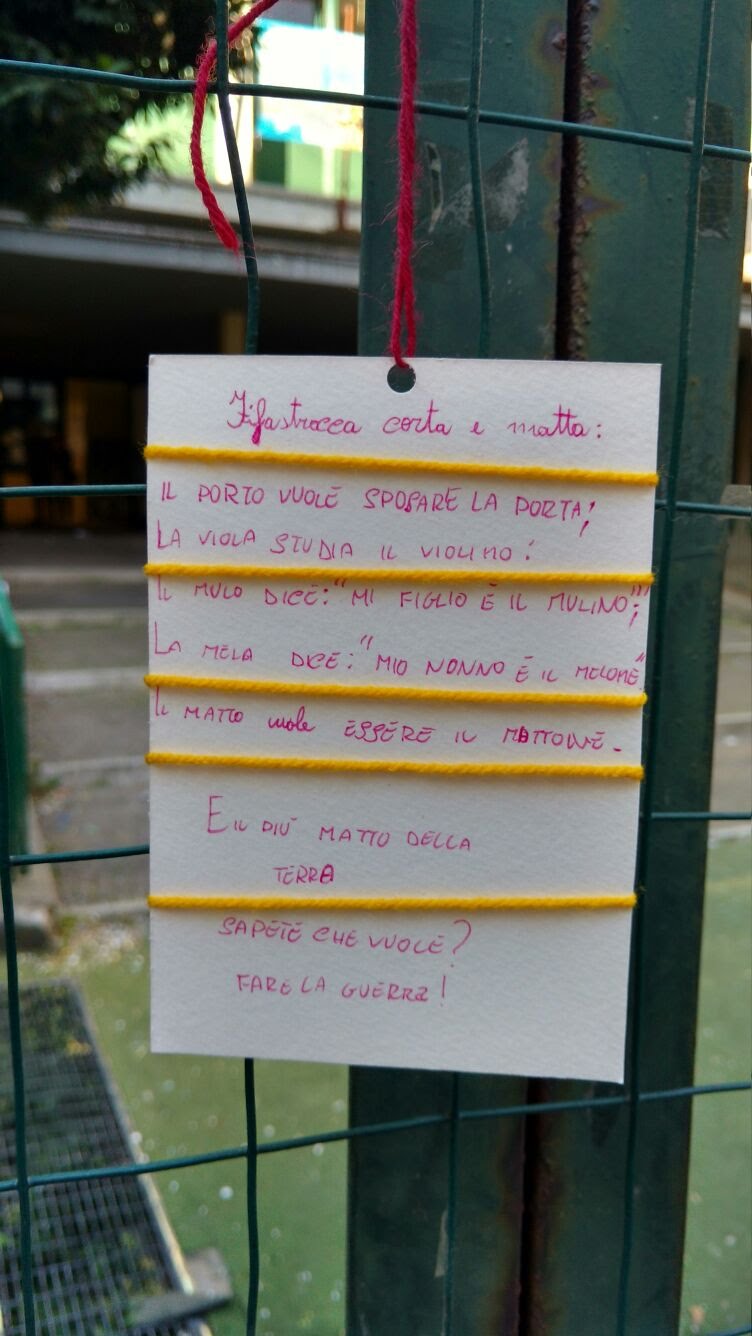 Filastrocca corta e matta:
IL PORTO VUOLE SPOSARE LA PORTA;
LA VIOLA STUDIA IL VIOLINO;
IL MULO DICE: "MI FIGLIO È IL MULINO";
LA MELA DICE: "MIO NONNO È IL MELONE"
IL MATTO vuole ESSERE IL MATTONE.
E IL PIÙ MATTO DELLA
TERRA
SAPETE CHE VUOLE?
FARE LA GUERRA!